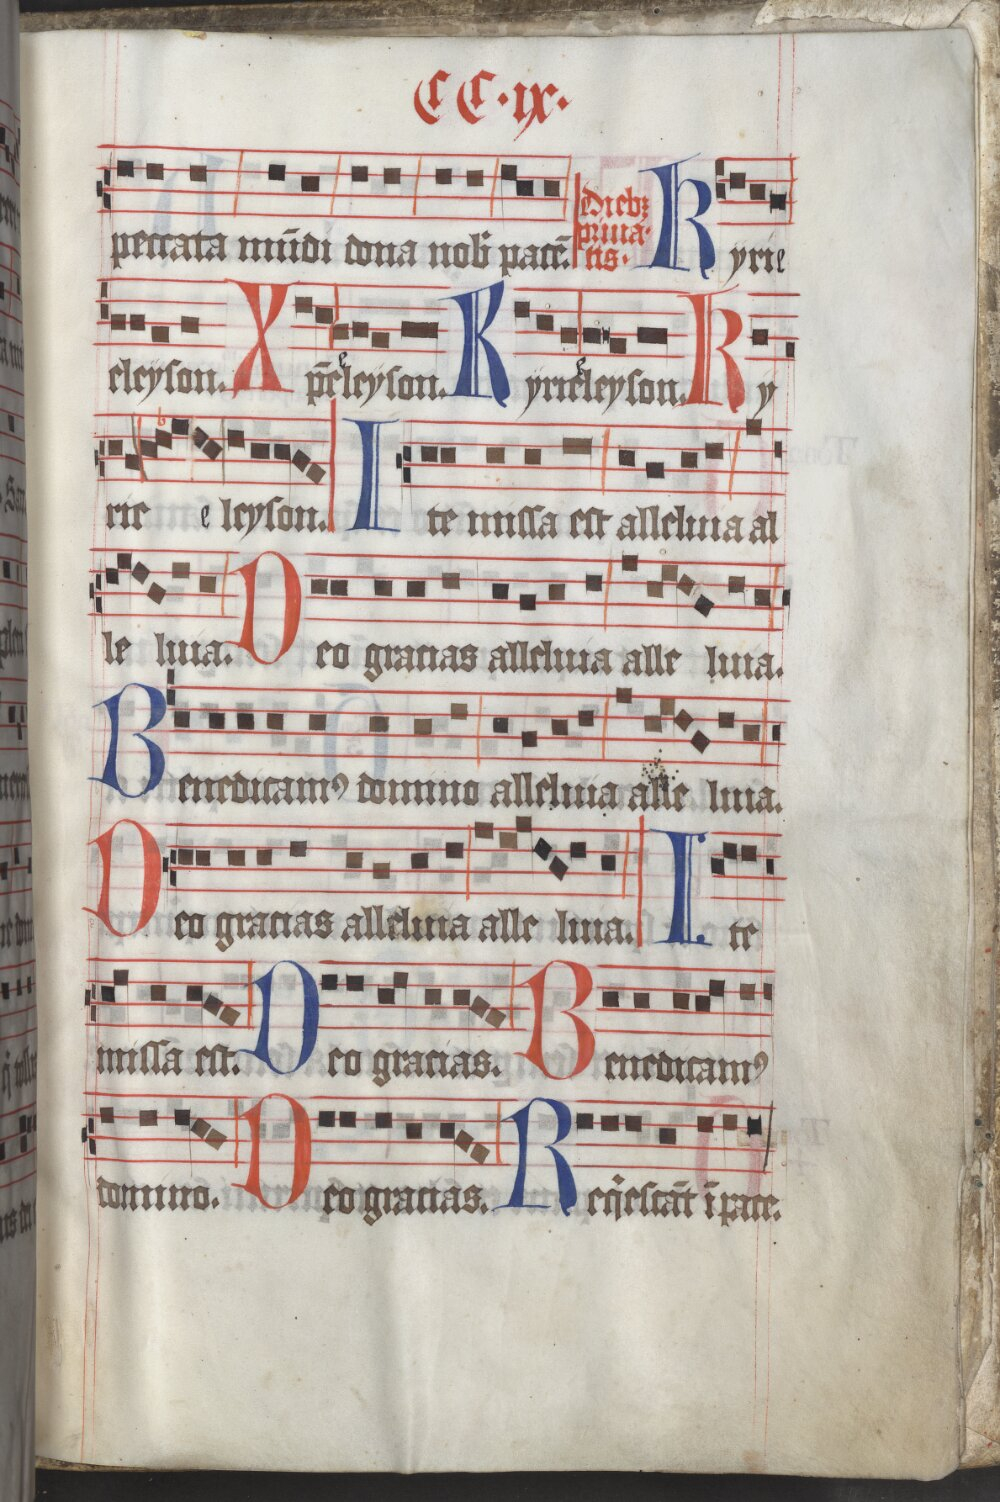 CC·ix·
peccata mūdi dona nob̄ pacē. Dieb₃ priua· tis· Kyrie
eleyson. Xp̄e eleyson. Kyrie eleyson. Ky
rie eleyson. Ite missa est alleluia al
le luia. Deo gracias alleluia alle luia.
Benedicamꝰ domino alleluia alle luia.
Deo gracias alleluia alle luia. Ite
missa est. Deo gracias. Benedicamꝰ
domino. Deo gracias. Reqͥescāt ī pace.